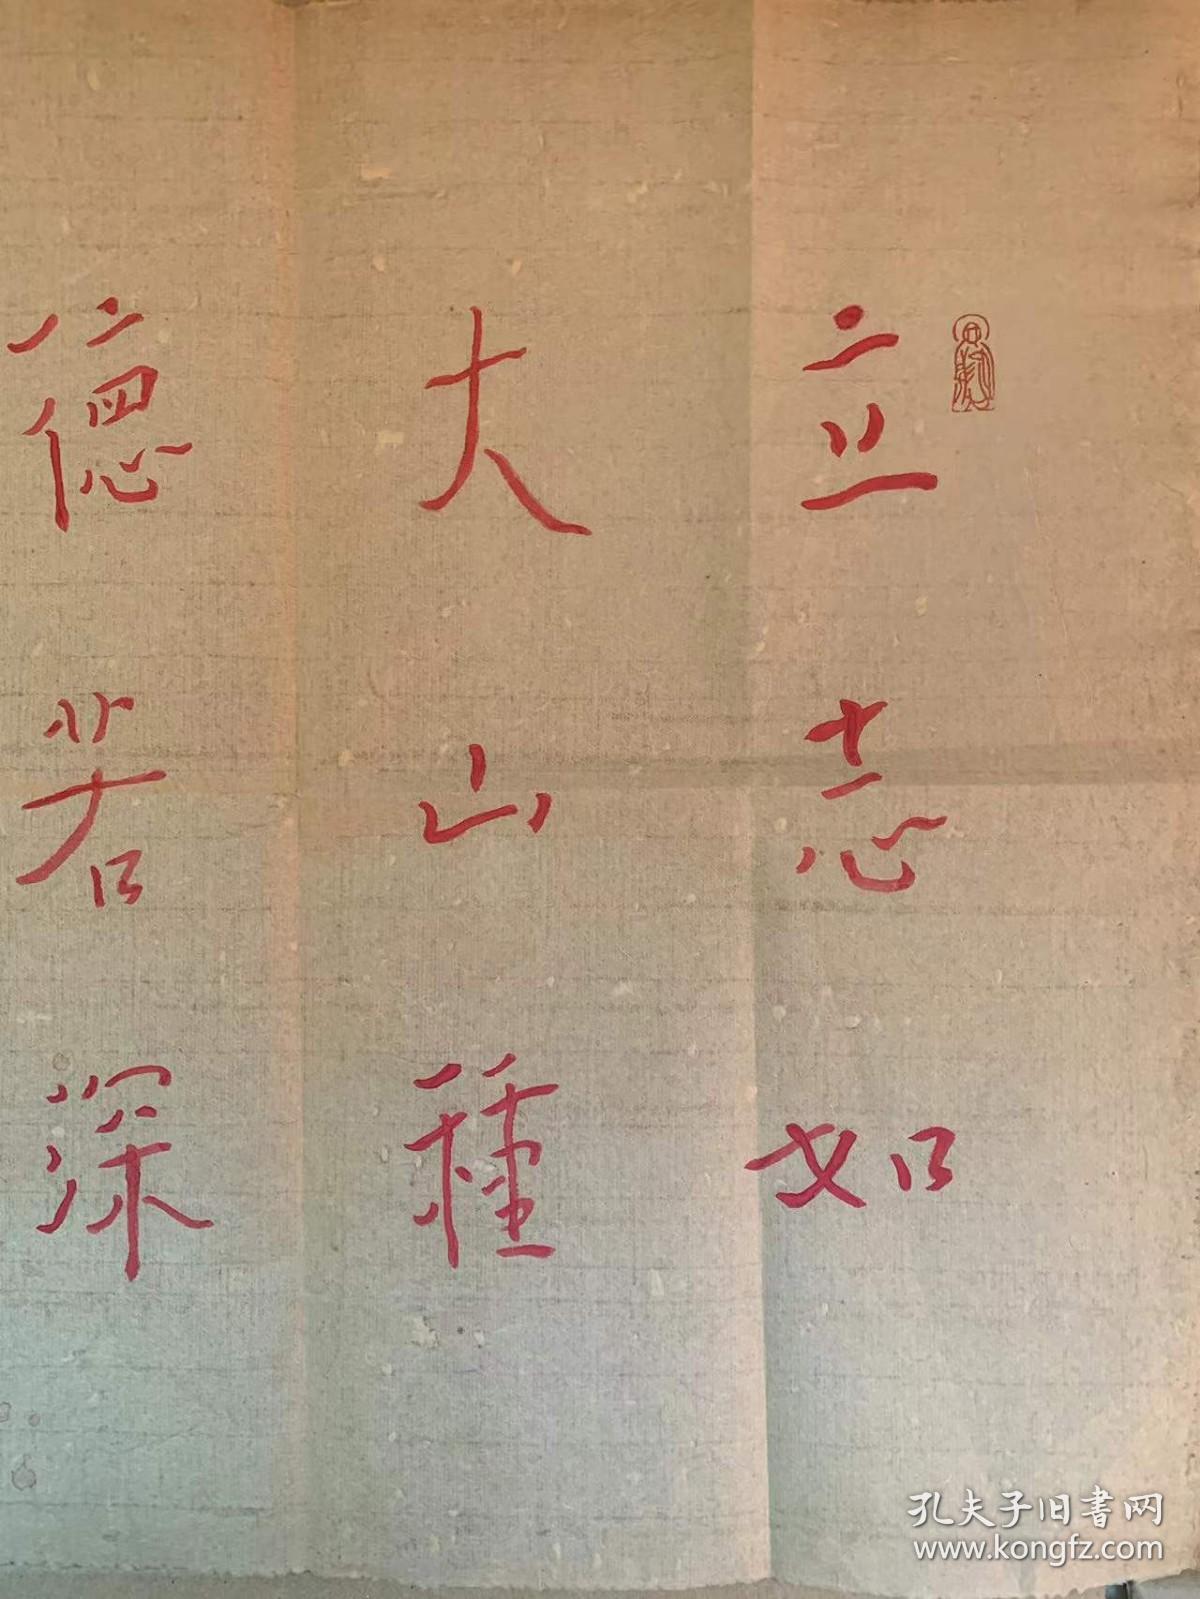 立志如
大山種
德若深
孔夫子旧書网
www.kongfz.com